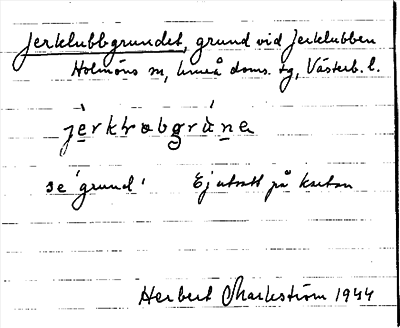 Jerklubbgrundet, grund vid Jerklubben
Holmöns sn, Umeå doms. tg, Västerb. l.
se 'grund' Ej utsatt på kartan
Herbert Markström 1944